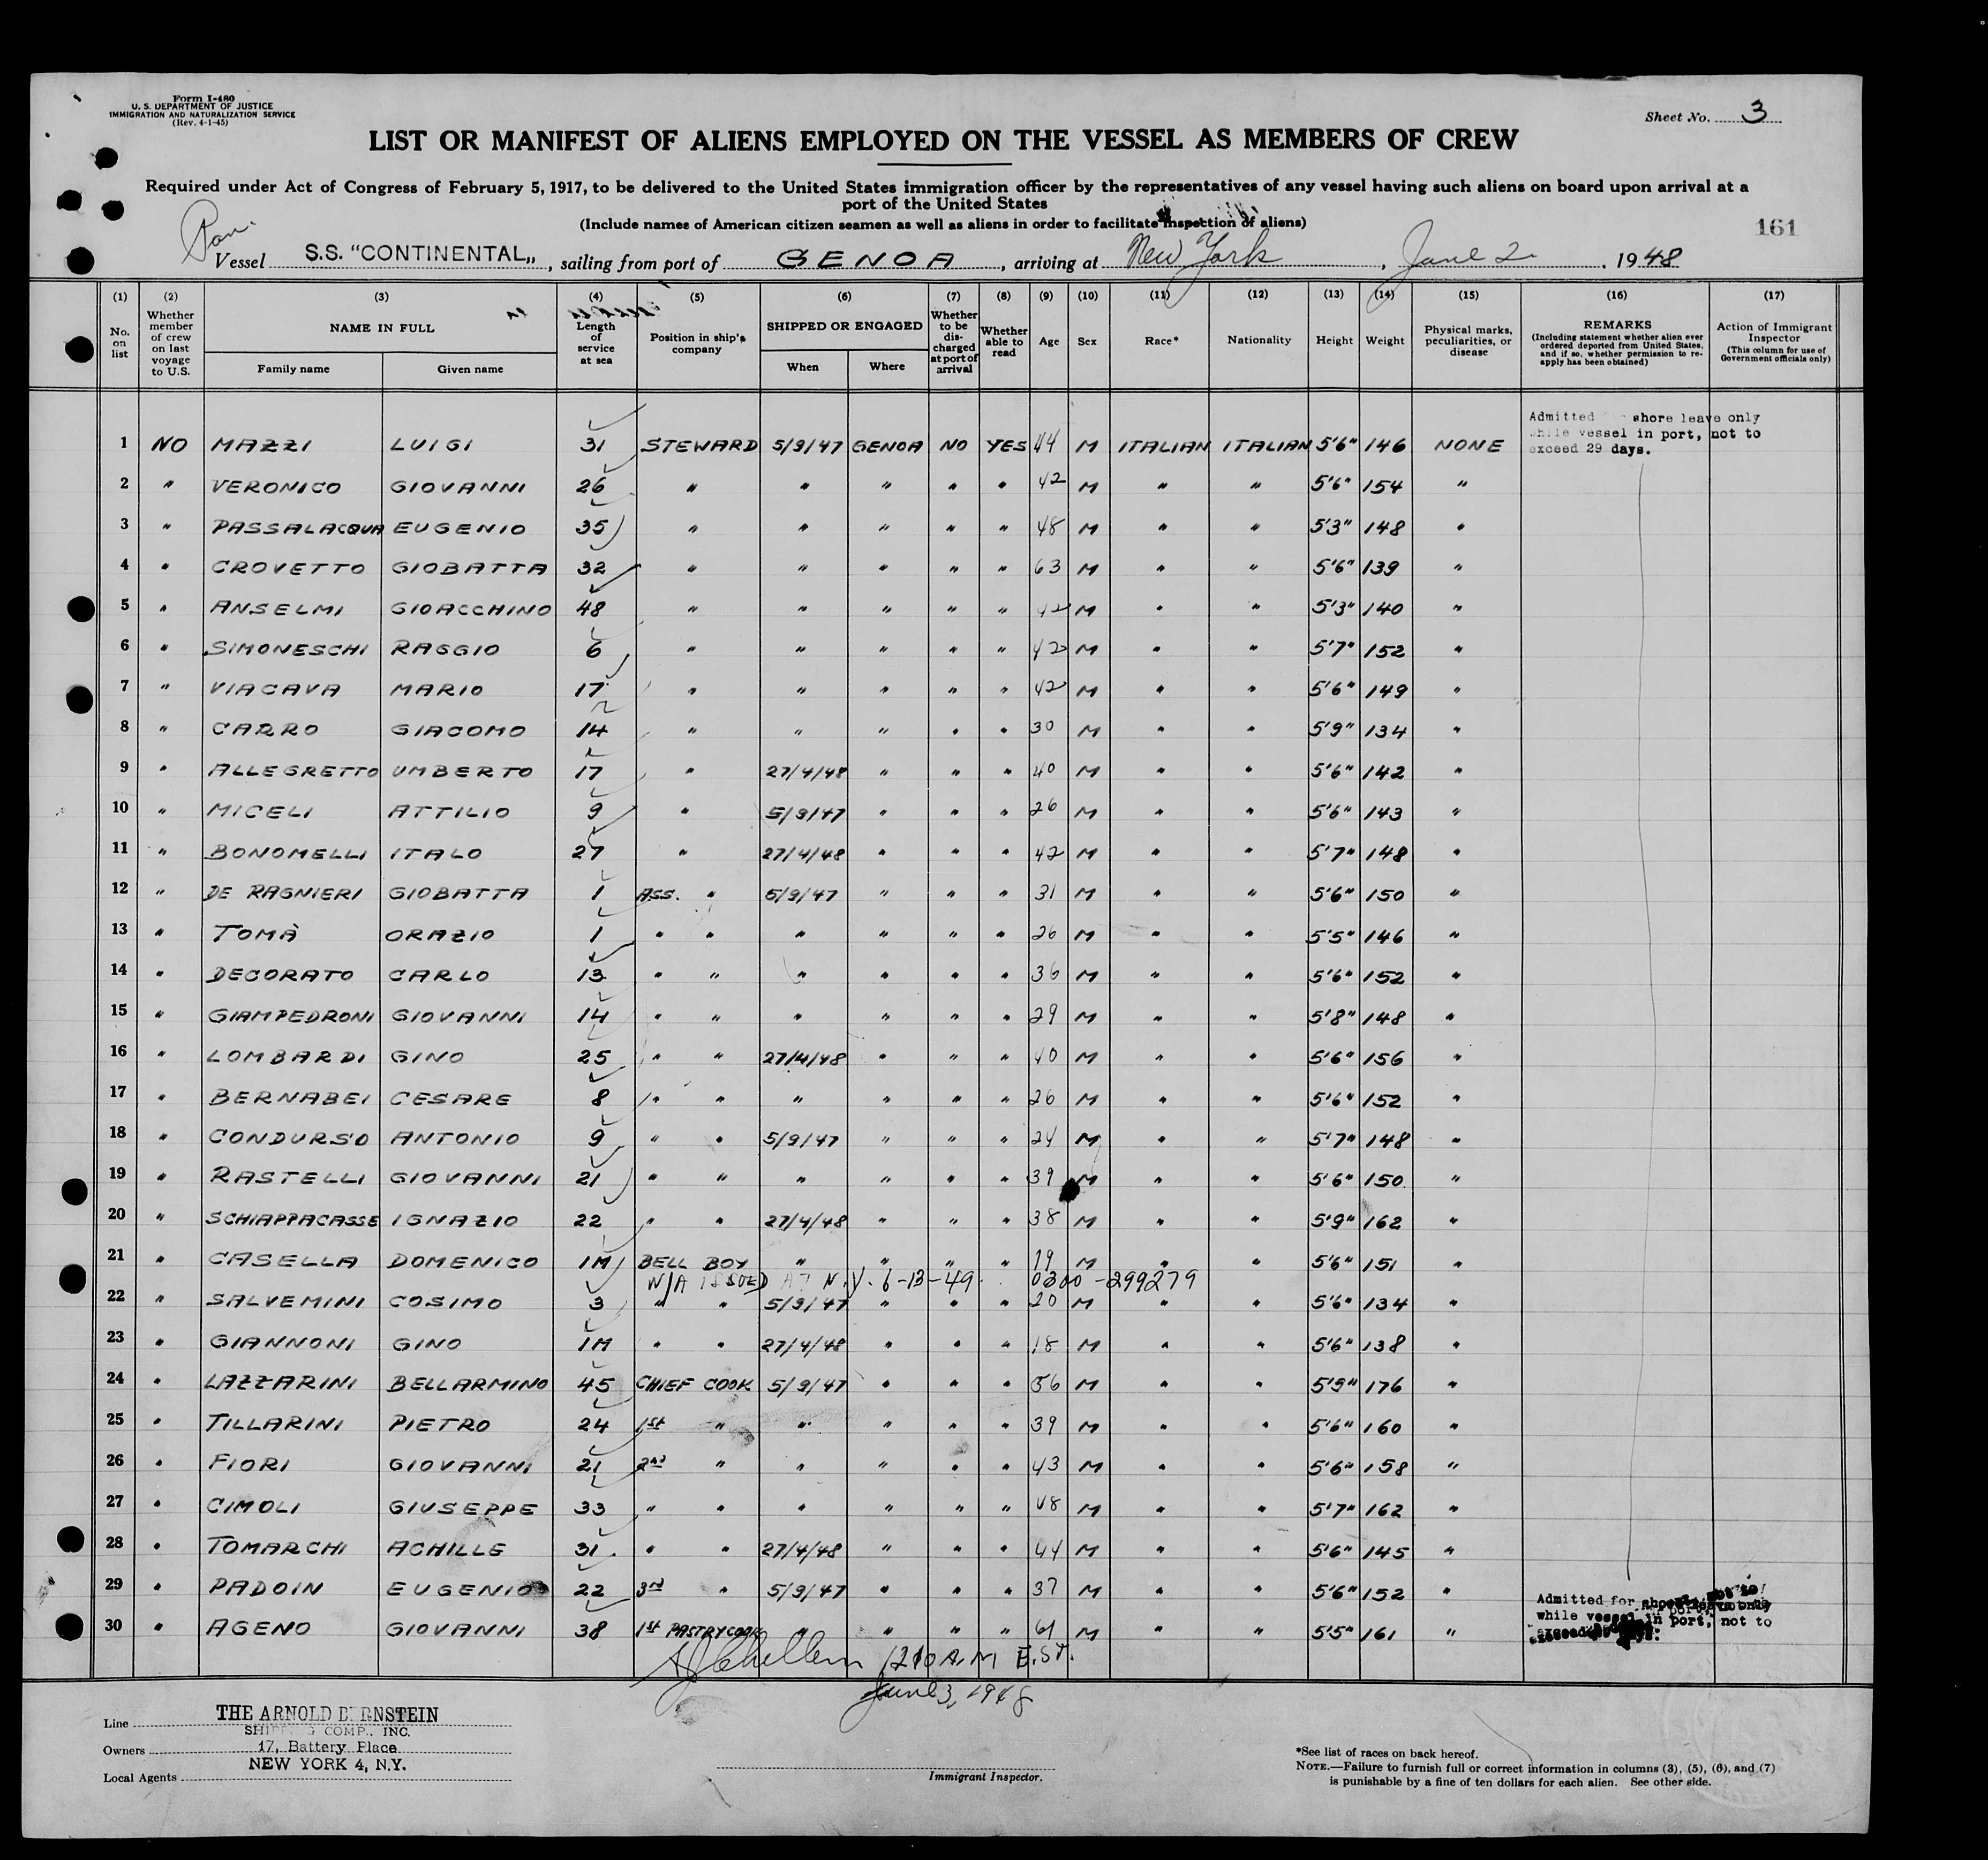 Form I-480
U. S. DEPARTMENT OF JUSTICE
IMMIGRATION AND NATURALIZATION SERVICE
(Rev. 4-1-45)
Sheet No. 3
LIST OR MANIFEST OF ALIENS EMPLOYED ON THE VESSEL AS MEMBERS OF CREW
Required under Act of Congress of February 5, 1917, to be delivered to the United States immigration officer by the representatives of any vessel having such aliens on board upon arrival at a
port of the United States
(Include names of American citizen seamen as well as aliens in order to facilitate inspection of aliens)
161
Pan.
Vessel S.S. "CONTINENTAL„, sailing from port of GENOA, arriving at New York, June 2, 1948
(1) (2) (3) (4) (5) (6) (7) (8) (9) (10) (11) (12) (13) (14) (15) (16) (17)
No. on list
Whether member of crew on last voyage to U.S.
NAME IN FULL
Family name Given name
Length of service at sea
Position in ship's company
SHIPPED OR ENGAGED
When Where
Whether to be discharged at port of arrival
Whether able to read
Age
Sex
Race*
Nationality
Height
Weight
Physical marks, peculiarities, or disease
REMARKS
(Including statement whether alien ever ordered deported from United States, and if so, whether permission to reapply has been obtained)
Action of Immigrant Inspector
(This column for use of Government officials only)
Admitted shore leave only
while vessel in port, not to
exceed 29 days.
1 NO MAZZI LUIGI 31 STEWARD 5/9/47 GENOA NO YES 44 M ITALIAN ITALIAN 5'6" 146 NONE
2 " VERONICO GIOVANNI 26 " " " " " 42 M " " 5'6" 154 "
3 " PASSALACQUA EUGENIO 35 " " " " " 48 M " " 5'3" 148 "
4 " CROVETTO GIOBATTA 32 " " " " " 63 M " " 5'6" 139 "
5 " ANSELMI GIOACCHINO 48 " " " " " 42 M " " 5'3" 140 "
6 " SIMONESCHI RAGGIO 6 " " " " " 42 M " " 5'7" 152 "
7 " VIACAVA MARIO 17 " " " " " 42 M " " 5'6" 149 "
8 " CARRO GIACOMO 14 " " " " " 30 M " " 5'9" 134 "
9 " ALLEGRETTO UMBERTO 17 " 27/4/48 " " " 40 M " " 5'6" 142 "
10 " MICELI ATTILIO 9 " 5/9/47 " " " 26 M " " 5'6" 143 "
11 " BONOMELLI ITALO 27 " 27/4/48 " " " 42 M " " 5'7" 148 "
12 " DE RAGNIERI GIOBATTA 1 ASS. " 5/9/47 " " " 31 M " " 5'6" 150 "
13 " TOMÀ ORAZIO 1 " " " " " " 26 M " " 5'5" 146 "
14 " DECORATO CARLO 13 " " " " " " 36 M " " 5'6" 152 "
15 " GIAMPEDRONI GIOVANNI 14 " " " " " " 29 M " " 5'8" 148 "
16 " LOMBARDI GINO 25 " " 27/4/48 " " " 40 M " " 5'6" 156 "
17 " BERNABEI CESARE 8 " " " " " " 26 M " " 5'6" 152 "
18 " CONDURSO ANTONIO 9 " " 5/9/47 " " " 24 M " " 5'7" 148 "
19 " RASTELLI GIOVANNI 21 " " " " " " 39 M " " 5'6" 150 "
20 " SCHIAPPACASSE IGNAZIO 22 " " 27/4/48 " " " 38 M " " 5'9" 162 "
21 " CASELLA DOMENICO 1M BELL BOY " " " " 19 M " " 5'6" 151 "
W/A ISSUED AT N.Y. 6-13-49. 0300-299279
22 " SALVEMINI COSIMO 3 " " 5/9/47 " " " 20 M " " 5'6" 134 "
23 " GIANNONI GINO 1M " " 27/4/48 " " " 18 M " " 5'6" 138 "
24 " LAZZARINI BELLARMINO 45 CHIEF COOK 5/9/47 " " " 56 M " " 5'9" 176 "
25 " TILLARINI PIETRO 24 1st " " " " " 39 M " " 5'6" 160 "
26 " FIORI GIOVANNI 21 2nd " " " " " 43 M " " 5'6" 158 "
27 " CIMOLI GIUSEPPE 33 " " " " " " 48 M " " 5'7" 162 "
28 " TOMARCHI ACHILLE 31 " " 27/4/48 " " " 44 M " " 5'6" 145 "
29 " PADOIN EUGENIO 22 3rd " 5/9/47 " " " 37 M " " 5'6" 152 "
30 " AGENO GIOVANNI 38 1st PASTRYCOOK " " " " 61 M " " 5'5" 161 "
Admitted for shore leave only
while vessel in port, not to
1210 A.M E.S.T.
June 3, 1948
Line THE ARNOLD BERNSTEIN
COMP., INC.
Owners 17, Battery Place
NEW YORK 4, N.Y.
Local Agents
Immigrant Inspector.
*See list of races on back hereof.
NOTE.—Failure to furnish full or correct information in columns (3), (5), (6), and (7)
is punishable by a fine of ten dollars for each alien. See other side.